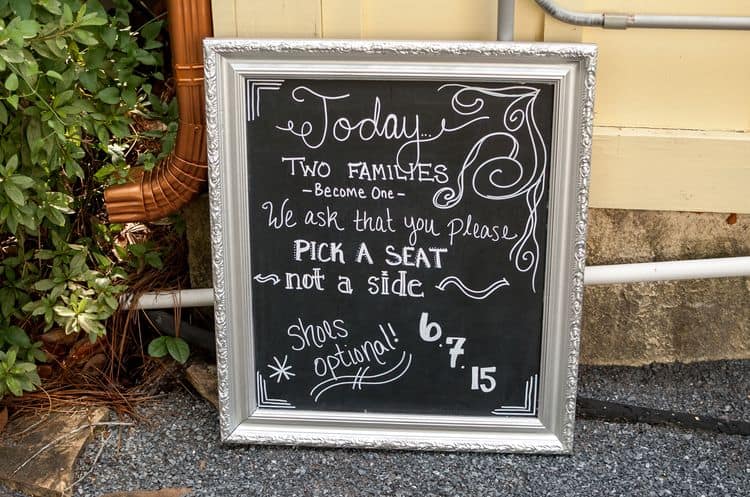 Today...
TWO FAMILIES
- BECOME ONE -
We ask that you please
PICK A SEAT
not a side
Shoes
optional!
6.7.15